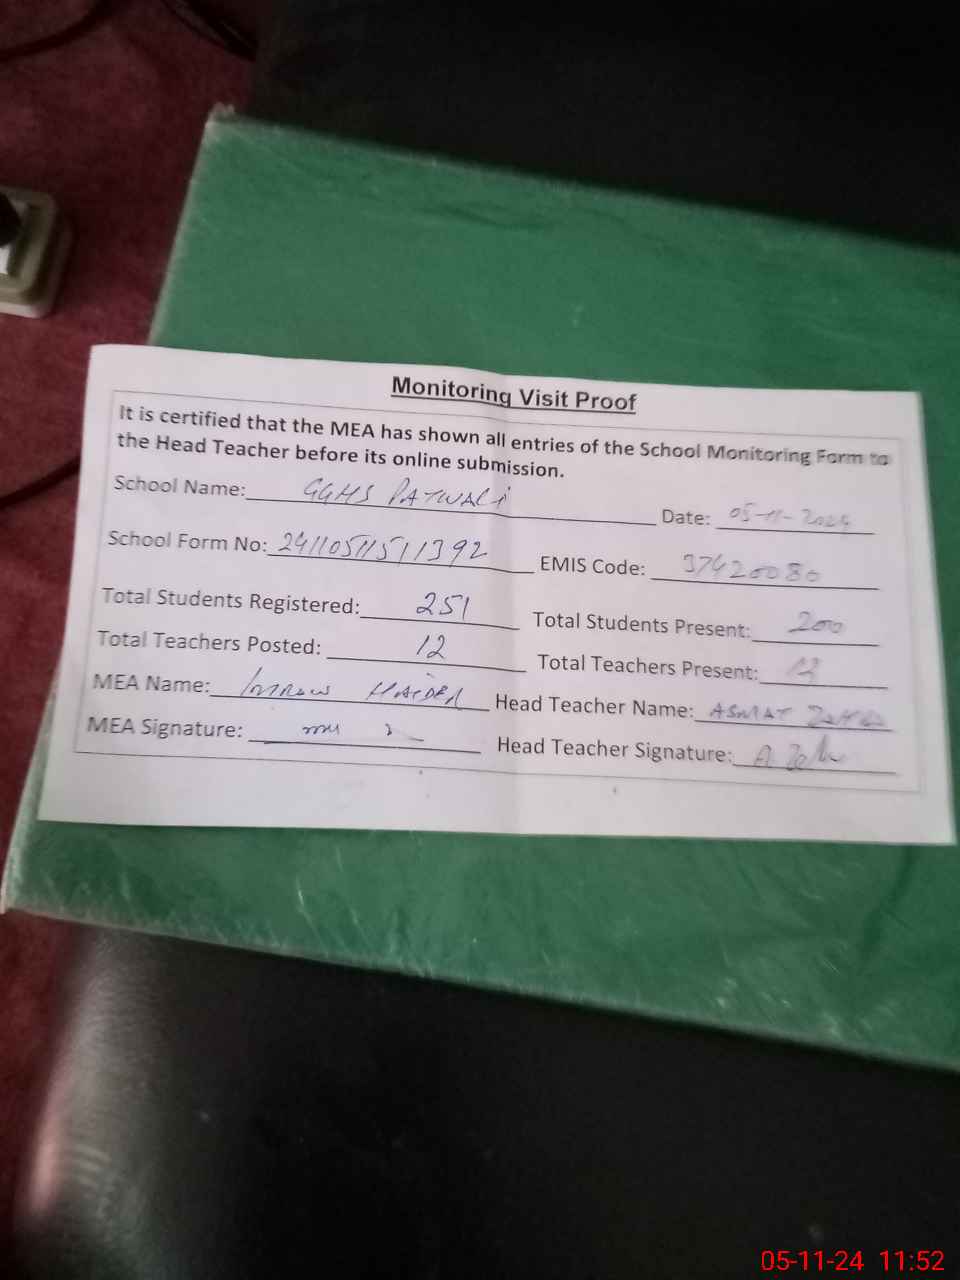 Monitoring Visit Proof
It is certified that the MEA has shown all entries of the School Monitoring Form to
the Head Teacher before its online submission.
School Name: GGHS PATWALI Date: 05-11-2024
School Form No: 24110511511392 EMIS Code: 37420080
Total Students Registered: 251 Total Students Present: 200
Total Teachers Posted: 12 Total Teachers Present:
MEA Name: HAIDER Head Teacher Name: ASMAT
MEA Signature: Head Teacher Signature:
05-11-24 11:52